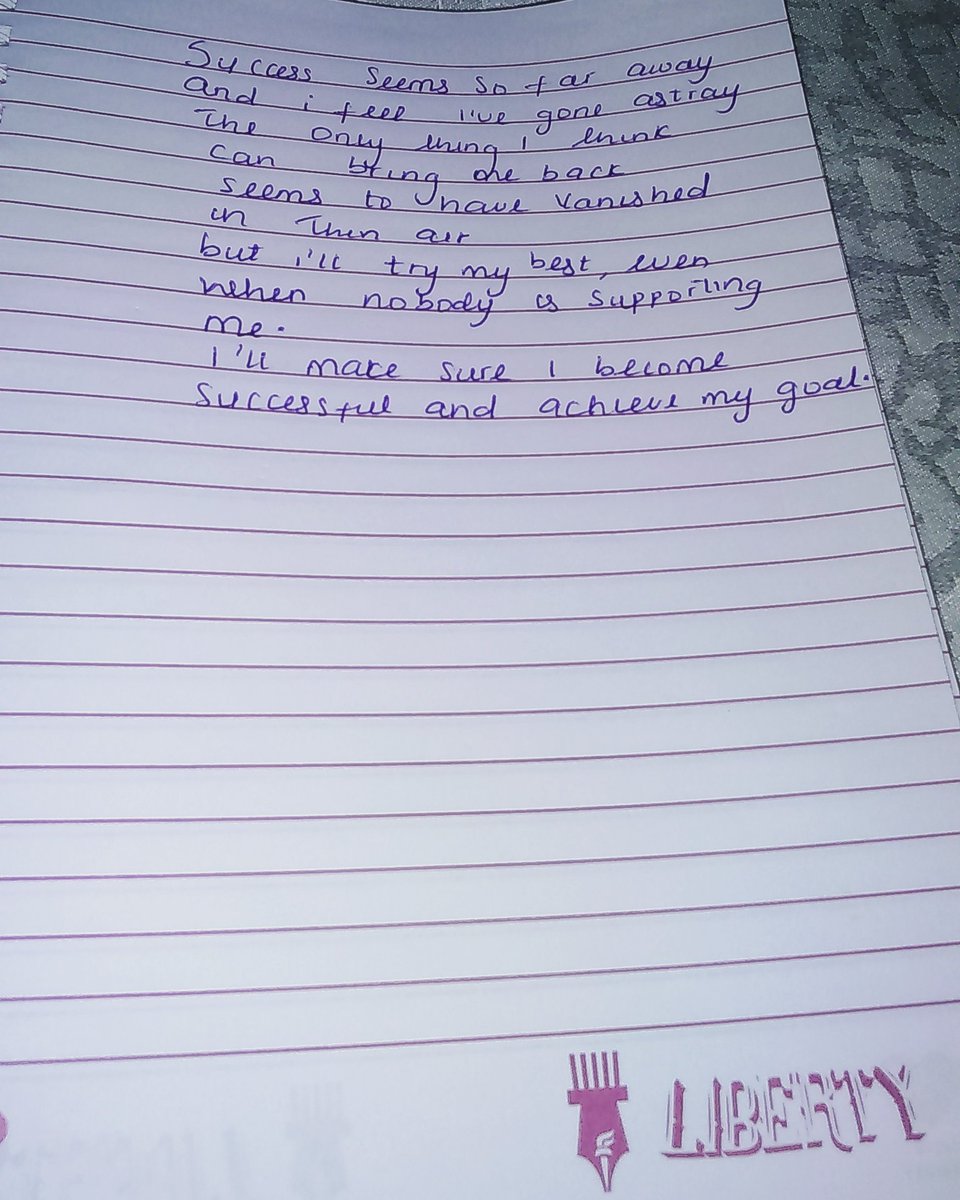 Success seems so far away
and i feel i've gone astray
The only thing I think
can bring me back
seems to have vanished
in Thin air
but i'll try my best, even
when nobody is supporting
me.
I'll make sure I become
Successful and achieve my goal.
LIBERTY